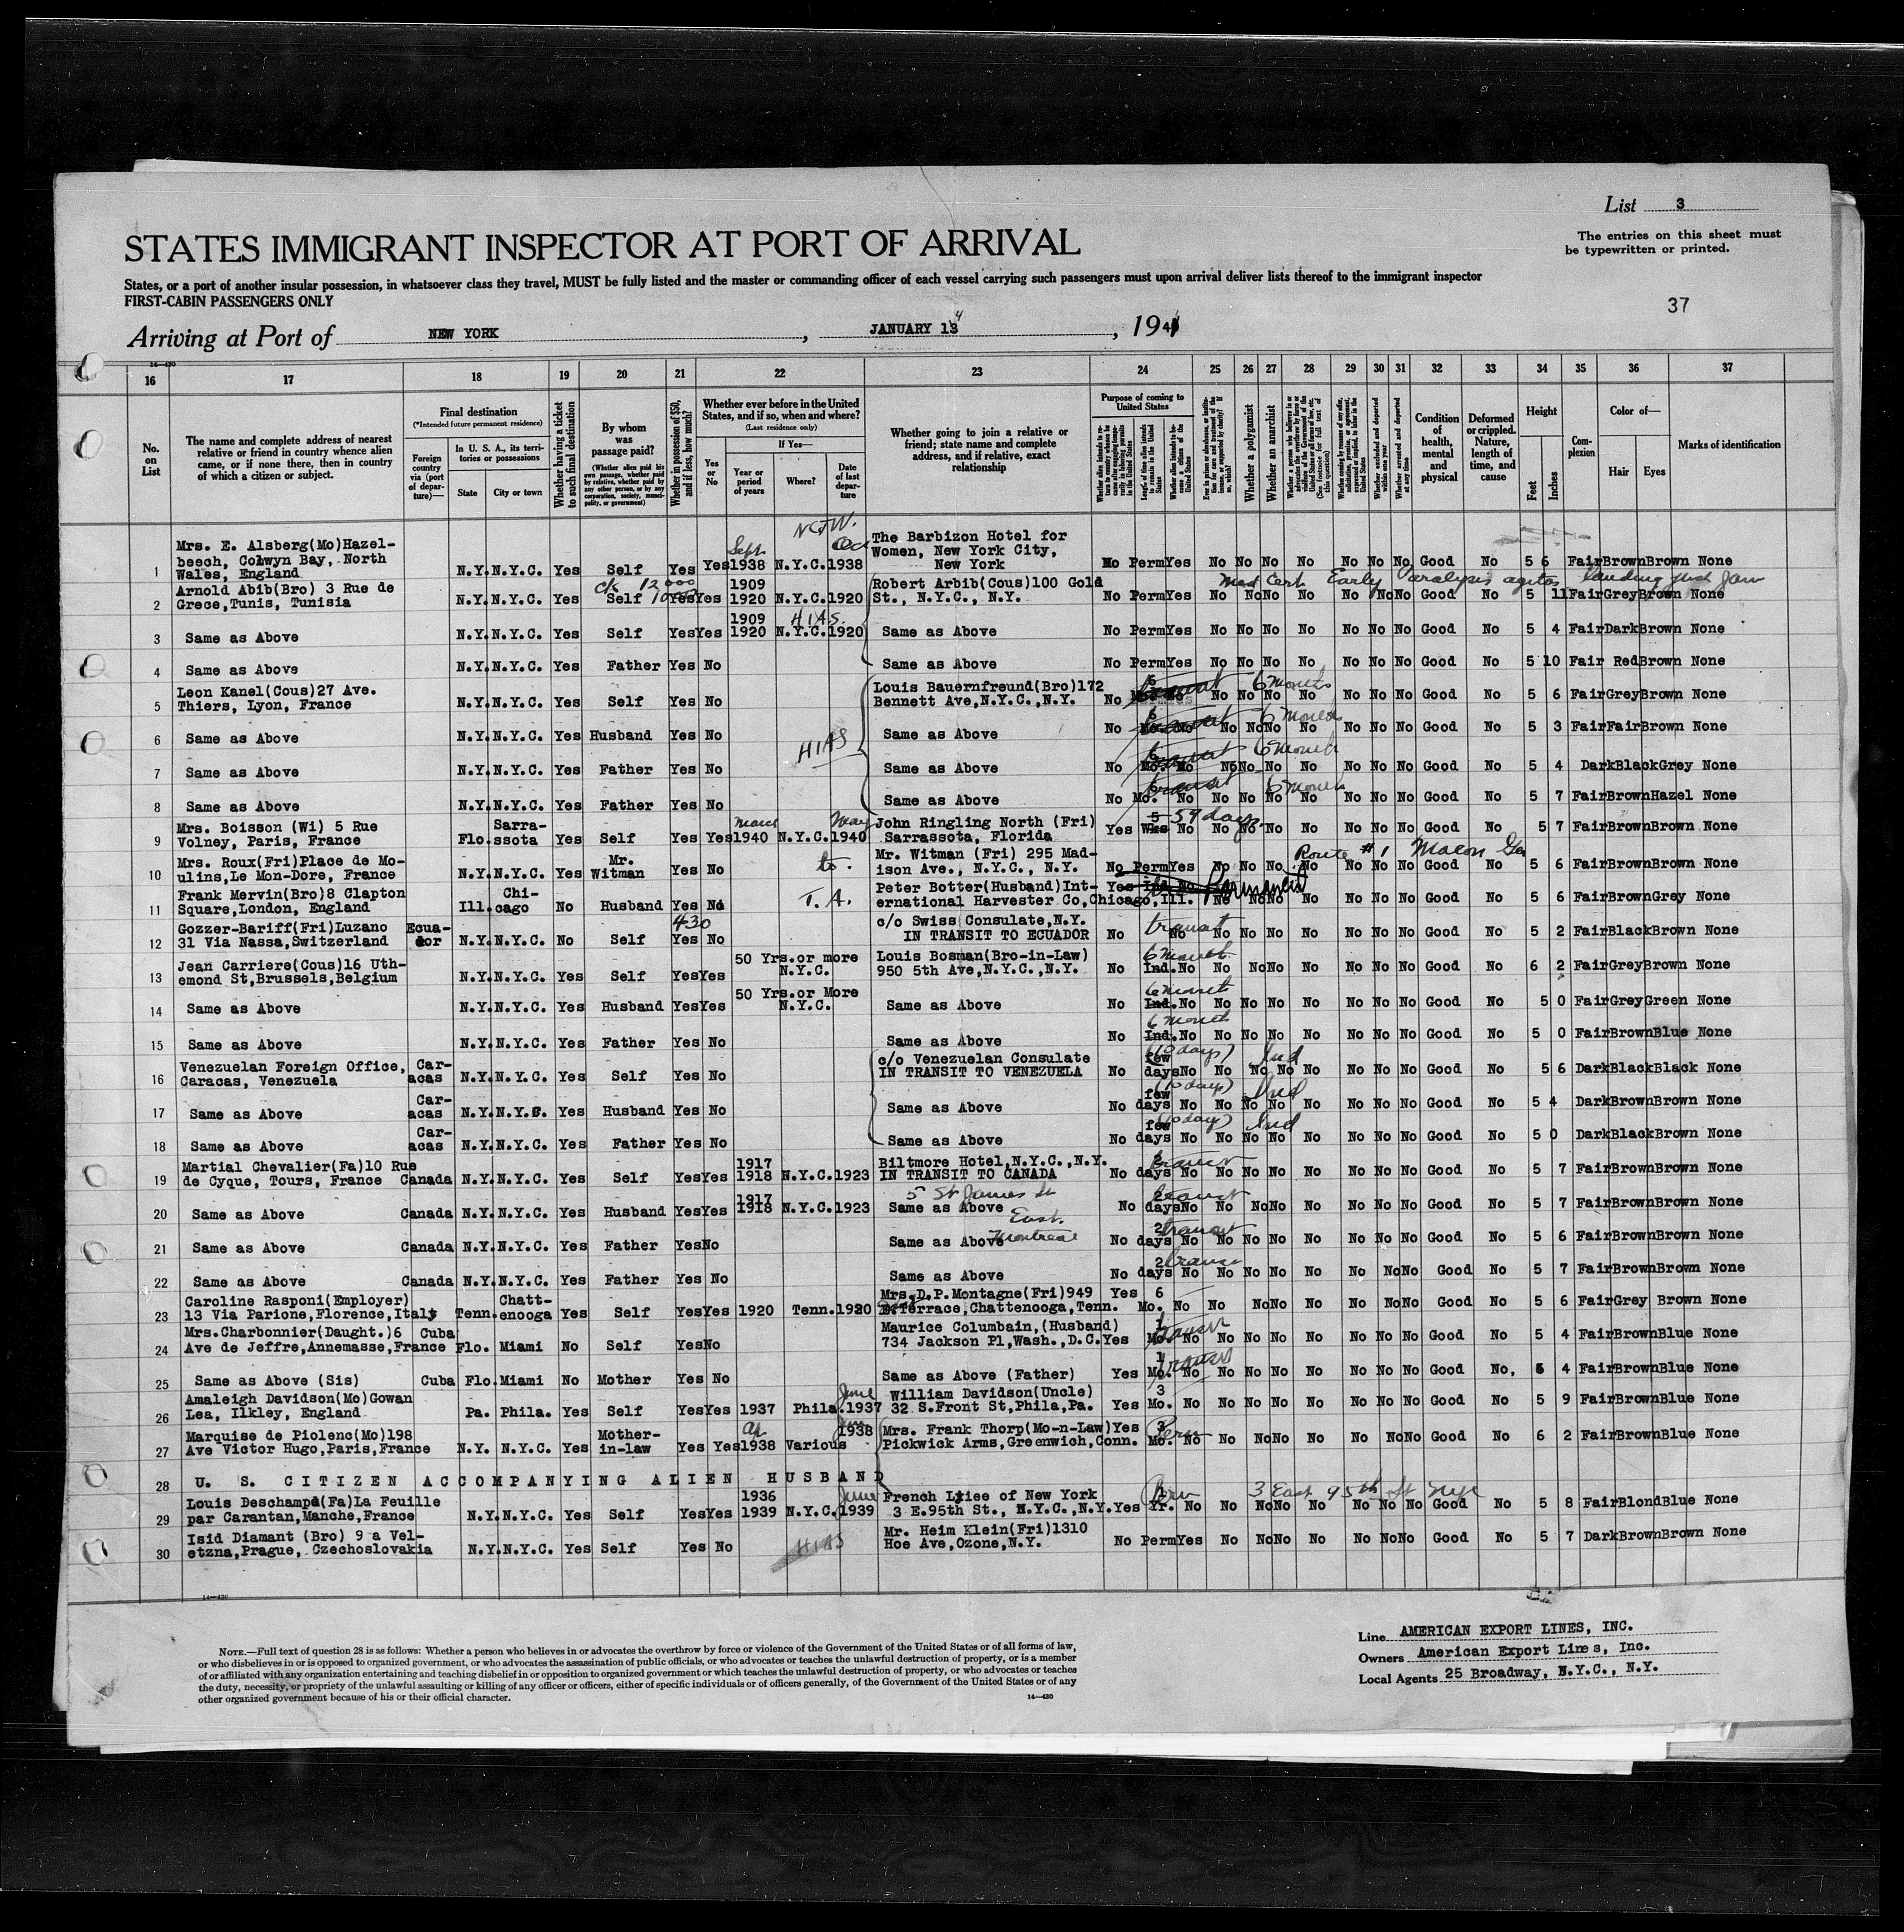 List 3
STATES IMMIGRANT INSPECTOR AT PORT OF ARRIVAL
The entries on this sheet must
be typewritten or printed.
States, or a port of another insular possession, in whatsoever class they travel, MUST be fully listed and the master or commanding officer of each vessel carrying such passengers must upon arrival deliver lists thereof to the immigrant inspector
FIRST-CABIN PASSENGERS ONLY
37
Arriving at Port of NEW YORK, JANUARY 13 4, 1941
16 17 18 19 20 21 22 23 24 25 26 27 28 29 30 31 32 33 34 35 36 37
No. on List
The name and complete address of nearest relative or friend in country whence alien came, or if none there, then in country of which a citizen or subject.
Final destination
(*Intended future permanent residence)
Foreign country via (port of departure)—
In U. S. A., its territories or possessions
State City or town
Whether having a ticket to such final destination
By whom was passage paid?
(Whether alien paid his own passage, whether paid by relative, whether paid by any other person, or by any corporation, society, municipality, or government)
Whether in possession of $50, and if less, how much?
Whether ever before in the United States, and if so, when and where?
(Last residence only)
Yes or No
If Yes—
Year or period of years Where? Date of last departure
Whether going to join a relative or friend; state name and complete address, and if relative, exact relationship
Purpose of coming to United States
Whether a polygamist
Whether an anarchist
Whether arrested and deported at any time
Condition of health, mental and physical
Deformed or crippled. Nature, length of time, and cause
Height
Feet Inches
Complexion
Color of—
Hair Eyes
Marks of identification
1 Mrs. E. Alsberg(Mo)Hazelbeech, Colwyn Bay, North Wales, England N.Y. N.Y.C. Yes Self Yes Yes Sept 1938 N.Y.C. Oct 1938 The Barbizon Hotel for Women, New York City, New York No Perm Yes No No No No No No No Good No 5 6 Fair Brown Brown None
2 Arnold Abib(Bro) 3 Rue de Grece,Tunis, Tunisia N.Y. N.Y.C. Yes Self Yes Yes 1909 1920 N.Y.C. 1920 Robert Arbib(Cous)100 Gold St., N.Y.C., N.Y. No Perm Yes No No No No No No No Good No 5 11 Fair Grey Brown None
Med Cert Early Paralysis agitans
3 Same as Above N.Y. N.Y.C. Yes Self Yes Yes 1909 1920 N.Y.C. 1920 HIAS. Same as Above No Perm Yes No No No No No No No Good No 5 4 Fair Dark Brown None
4 Same as Above N.Y. N.Y.C. Yes Father Yes No Same as Above No Perm Yes No No No No No No No Good No 5 10 Fair Red Brown None
5 Leon Kanel(Cous)27 Ave. Thiers, Lyon, France N.Y. N.Y.C. Yes Self Yes No Louis Bauernfreund(Bro)172 Bennett Ave,N.Y.C.,N.Y. No 6 Mo. No 6 months No No No No No No No Good No 5 6 Fair Grey Brown None
6 Same as Above N.Y. N.Y.C. Yes Husband Yes No Same as Above No 6 Mo. No 6 months No No No No No No No Good No 5 3 Fair Fair Brown None
HIAS
7 Same as Above N.Y. N.Y.C. Yes Father Yes No Same as Above No 6 Mo. No 6 months No No No No No No No Good No 5 4 Dark Black Grey None
8 Same as Above N.Y. N.Y.C. Yes Father Yes No Same as Above No 6 Mo. No 6 months No No No No No No No Good No 5 7 Fair Brown Hazel None
9 Mrs. Boisson (Wi) 5 Rue Volney, Paris, France Flo. Sarrassota Yes Self Yes Yes March 1940 N.Y.C. May 1940 John Ringling North (Fri) Sarrassota, Florida Yes 5 Wks No 59 days No No No No No No No Good No 5 7 Fair Brown Brown None
10 Mrs. Roux(Fri)Place de Moulins,Le Mon-Dore, France N.Y. N.Y.C. Yes Mr. Witman Yes No Mr. Witman (Fri) 295 Madison Ave., N.Y.C., N.Y. No Perm Yes No No No No No No No Good No 5 6 Fair Brown Brown None
Route #1 Macon Ga
11 Frank Mervin(Bro)8 Clapton Square,London, England Ill. Chicago No Husband Yes No T. A. Peter Botter(Husband)International Harvester Co,Chicago,Ill. Yes Ind. No Permanent No No No No No No No Good No 5 6 Fair Brown Grey None
12 Gozzer-Bariff(Fri)Luzano 31 Via Nassa,Switzerland Ecuador N.Y. N.Y.C. No Self 430 Yes No c/o Swiss Consulate,N.Y. IN TRANSIT TO ECUADOR No transit No No No No No No No No Good No 5 2 Fair Black Brown None
13 Jean Carriere(Cous)16 Uthemond St,Brussels,Belgium N.Y. N.Y.C. Yes Self Yes Yes 50 Yrs.or more N.Y.C. Louis Bosman(Bro-in-Law) 950 5th Ave,N.Y.C.,N.Y. No 6 months Ind. No No No No No No No No Good No 6 2 Fair Grey Brown None
14 Same as Above N.Y. N.Y.C. Yes Husband Yes Yes 50 Yrs.or More N.Y.C. Same as Above No 6 months Ind. No No No No No No No No Good No 5 0 Fair Grey Green None
15 Same as Above N.Y. N.Y.C. Yes Father Yes No Same as Above No 6 months Ind. No No No No No No No No Good No 5 0 Fair Brown Blue None
16 Venezuelan Foreign Office, Caracas, Venezuela Caracas N.Y. N.Y.C. Yes Self Yes No c/o Venezuelan Consulate IN TRANSIT TO VENEZUELA No few days (10 days) No Ind No No No No No No No Good No 5 6 Dark Black Black None
17 Same as Above Caracas N.Y. N.Y.C. Yes Husband Yes No Same as Above No few days (10 days) No Ind No No No No No No No Good No 5 4 Dark Brown Brown None
18 Same as Above Caracas N.Y. N.Y.C. Yes Father Yes No Same as Above No few days (10 days) No Ind No No No No No No No Good No 5 0 Dark Black Brown None
19 Martial Chevalier(Fa)10 Rue de Cyque, Tours, France Canada N.Y. N.Y.C. Yes Self Yes Yes 1917 1918 N.Y.C. 1923 Biltmore Hotel,N.Y.C.,N.Y. IN TRANSIT TO CANADA No 2 days transit No No No No No No No No Good No 5 7 Fair Brown Brown None
20 Same as Above Canada N.Y. N.Y.C. Yes Husband Yes Yes 1917 1918 N.Y.C. 1923 5 St James St East. Montreal Same as Above No 2 days transit No No No No No No No No Good No 5 7 Fair Brown Brown None
21 Same as Above Canada N.Y. N.Y.C. Yes Father Yes No Same as Above No 2 days transit No No No No No No No No Good No 5 6 Fair Brown Brown None
22 Same as Above Canada N.Y. N.Y.C. Yes Father Yes No Same as Above No 2 days transit No No No No No No No No Good No 5 7 Fair Brown Brown None
23 Caroline Rasponi(Employer) 13 Via Parione,Florence,Italy Tenn. Chattenooga Yes Self Yes Yes 1920 Tenn. 1920 Mrs.D.P.Montagne(Fri)949 Terrace,Chattenooga,Tenn. Yes 6 Mo. No No No No No No No No Good No 5 6 Fair Grey Brown None
24 Mrs.Charbonnier(Daught.)6 Ave de Jeffre,Annemasse,France Cuba Flo. Miami No Self Yes No Maurice Columbain,(Husband) 734 Jackson Pl,Wash.,D.C. Yes 1 Mo. transit No No No No No No No No Good No 5 4 Fair Brown Blue None
25 Same as Above (Sis) Cuba Flo. Miami No Mother Yes No Same as Above (Father) Yes 1 Mo. transit No No No No No No No No Good No. 5 4 Fair Brown Blue None
26 Amaleigh Davidson(Mo)Gowan Lea, Ilkley, England Pa. Phila. Yes Self Yes Yes 1937 Phila. June 1937 William Davidson(Uncle) 32 S.Front St,Phila,Pa. Yes 3 Mo. No No No No No No No No Good No 5 9 Fair Brown Blue None
27 Marquise de Piolenc(Mo)198 Ave Victor Hugo,Paris,France N.Y. N.Y.C. Yes Mother-in-law Yes Yes 1938 Various 1938 Mrs. Frank Thorp(Mo-n-Law) Pickwick Arms,Greenwich,Conn. Yes Mo. Perm No No No No No No No No Good No 6 2 Fair Brown Blue None
28 U. S. CITIZEN ACCOMPANYING ALIEN HUSBAND
29 Louis Deschamps(Fa)La Feuille par Carantan,Manche,France N.Y. N.Y.C. Yes Self Yes Yes 1936 1939 N.Y.C. June 1939 French Lyiee of New York 3 E.95th St., N.Y.C.,N.Y. Yes Yr. No No No No No No No No Good No 5 8 Fair Blond Blue None
3 East 95th St NYC
30 Isid Diamant (Bro) 9 a Veletzna,Prague, Czechoslovakia N.Y. N.Y.C. Yes Self Yes No HIAS Mr. Heim Klein(Fri)1310 Hoe Ave,Ozone,N.Y. No Perm Yes No No No No No No No Good No 5 7 Dark Brown Brown None
14—430
NOTE.—Full text of question 28 is as follows: Whether a person who believes in or advocates the overthrow by force or violence of the Government of the United States or of all forms of law,
or who disbelieves in or is opposed to organized government, or who advocates the assassination of public officials, or who advocates or teaches the unlawful destruction of property, or is a member
of or affiliated with any organization entertaining and teaching disbelief in or opposition to organized government or which teaches the unlawful destruction of property, or who advocates or teaches
the duty, necessity, or propriety of the unlawful assaulting or killing of any officer or officers, either of specific individuals or of officers generally, of the Government of the United States or of any
other organized government because of his or their official character.
14—430
Line AMERICAN EXPORT LINES, INC.
Owners American Export Lines, Inc.
Local Agents 25 Broadway, N.Y.C., N.Y.